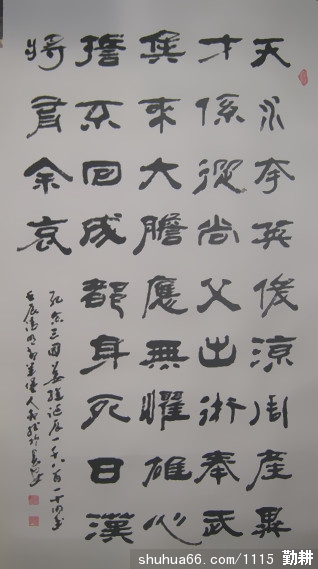 天水夸英俊涼州產異
才係從尚父出術奉武
侯來大膽應無懼雄心
不回成都身死日漢
將有余哀
紀念三國姜維誕辰一千八百一十
壬辰清明
shuhua66.com/1115 勤耕